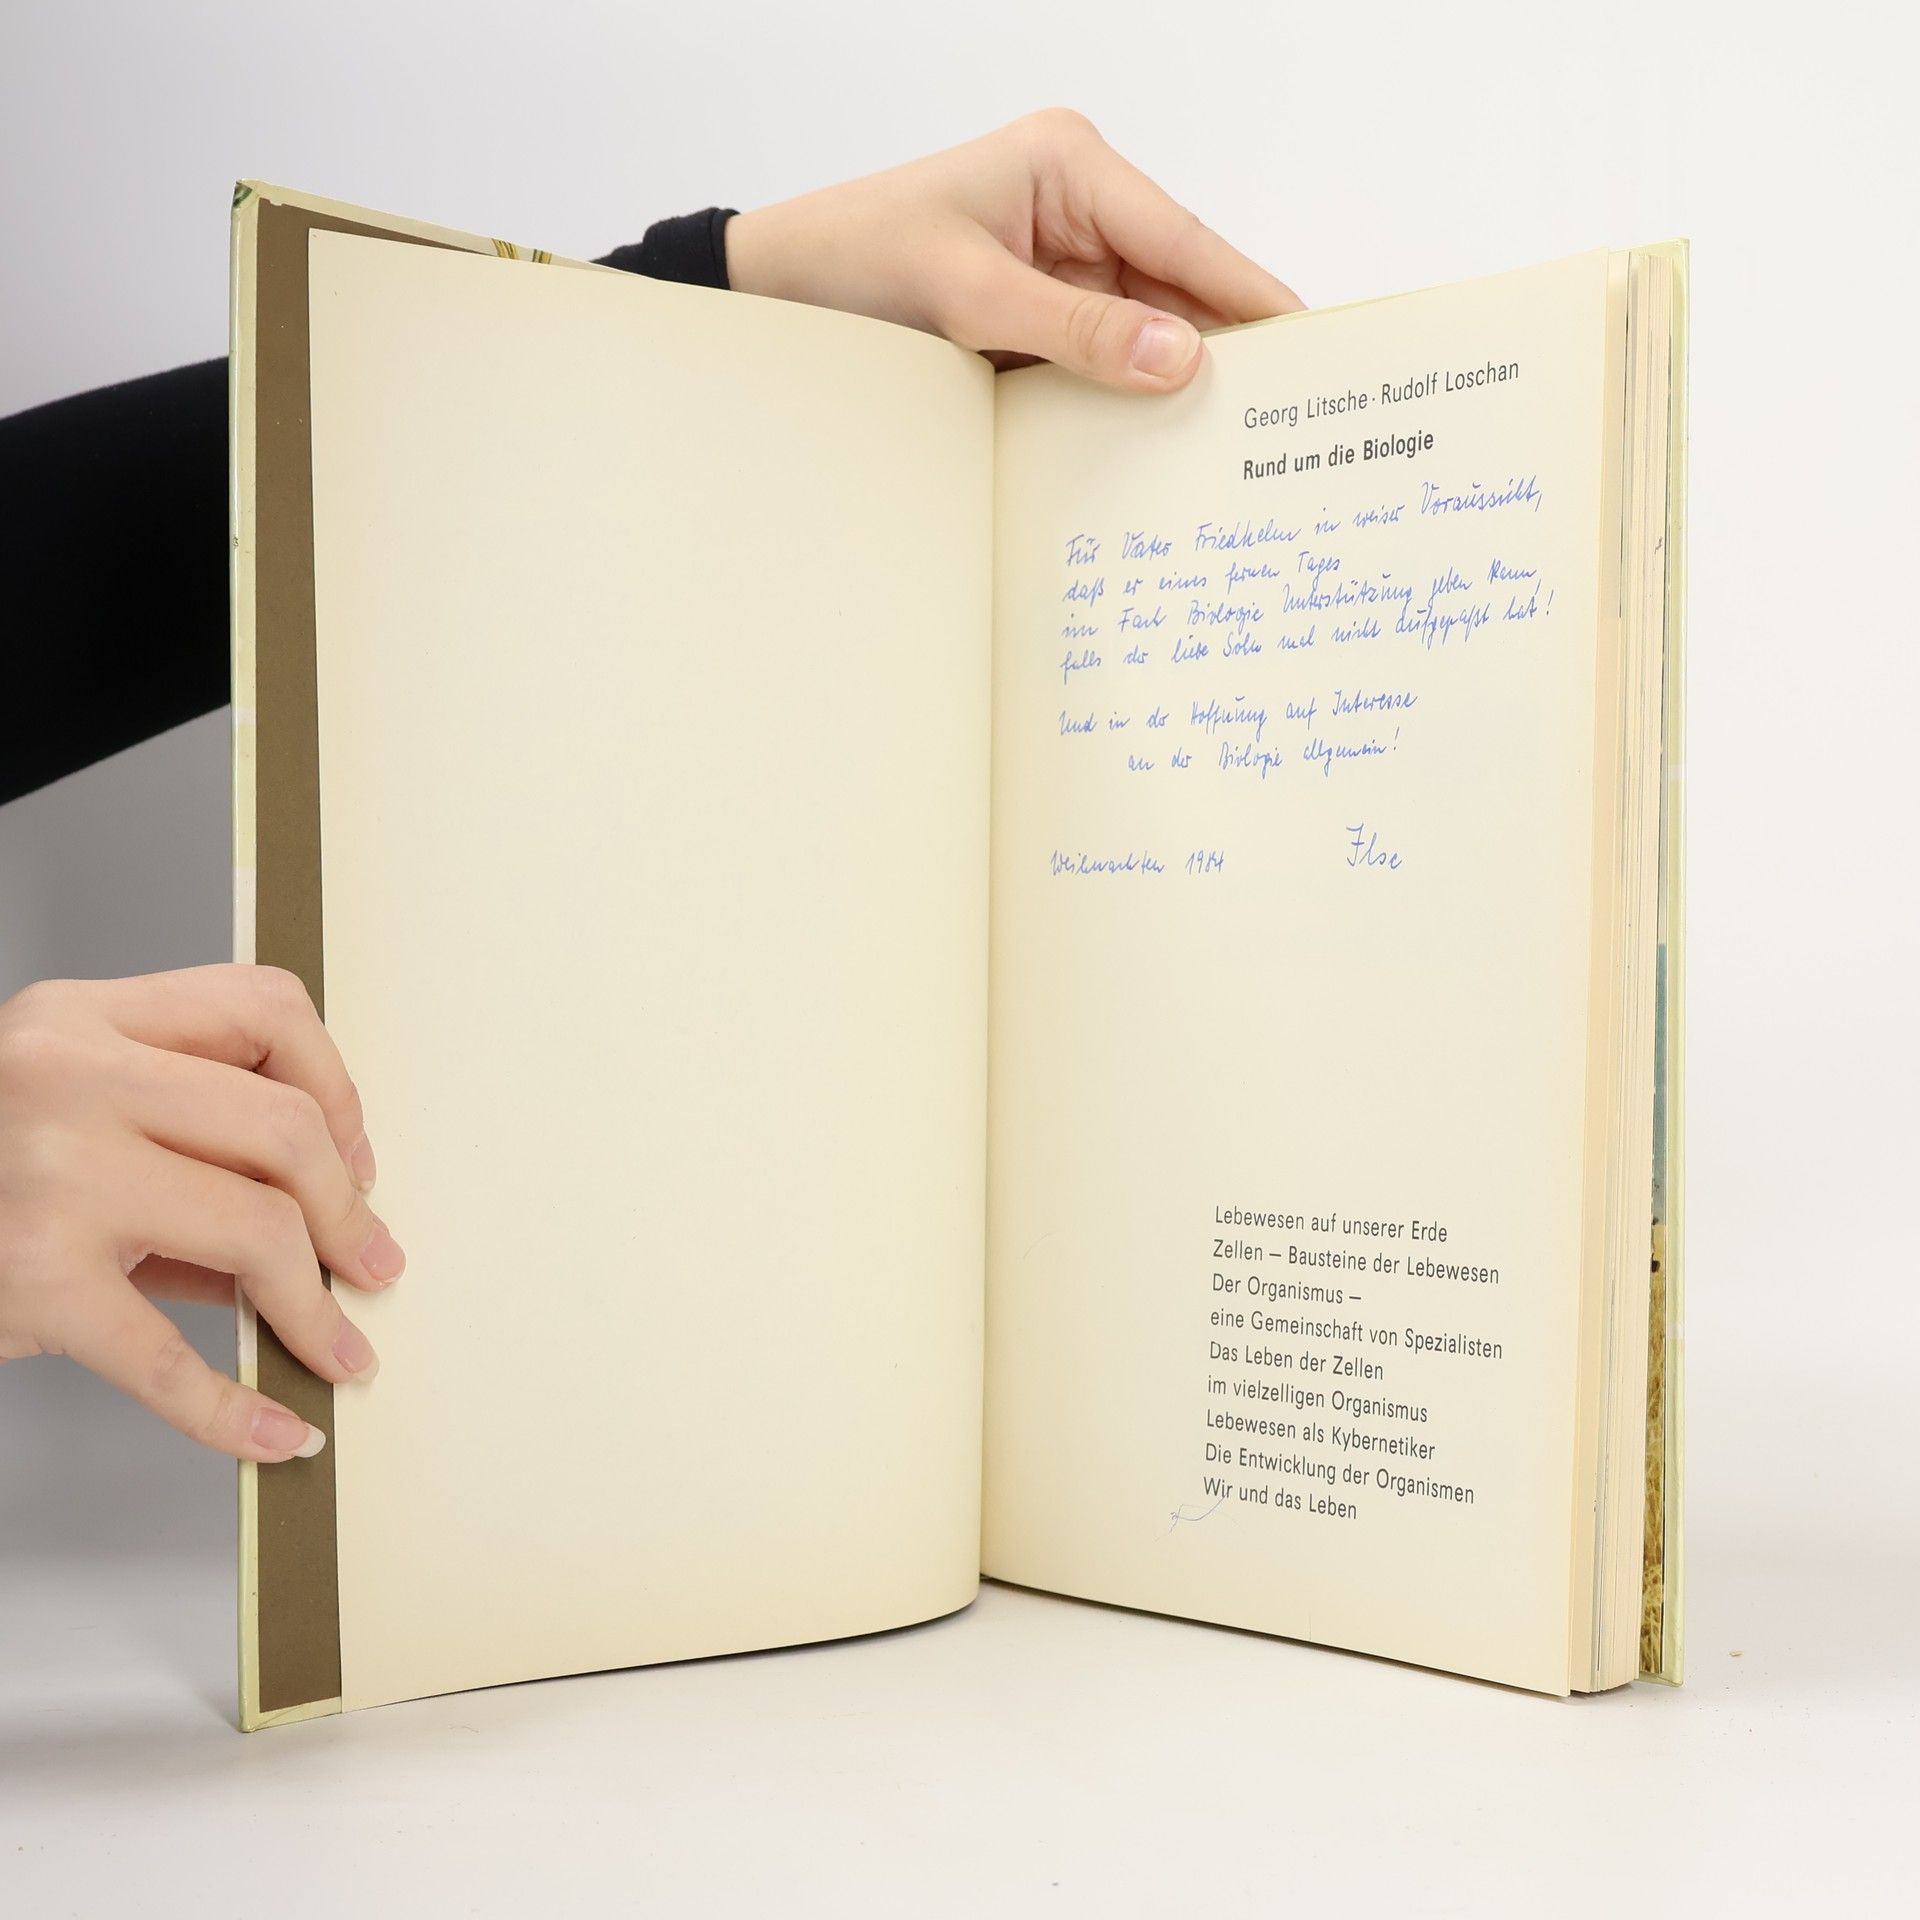 Georg Litsche · Rudolf Loschan
Rund um die Biologie
Für Vater Friedhelm in weiser Voraussicht,
daß er eines fernen Tages
im Fach Biologie Unterstützung geben kann,
falls der liebe Sohn mal nicht aufgepaßt hat!
Und in der Hoffnung auf Interesse
an der Biologie allgemein!
Weihnachten 1984 Ilse
Lebewesen auf unserer Erde
Zellen – Bausteine der Lebewesen
Der Organismus –
eine Gemeinschaft von Spezialisten
Das Leben der Zellen
im vielzelligen Organismus
Lebewesen als Kybernetiker
Die Entwicklung der Organismen
Wir und das Leben